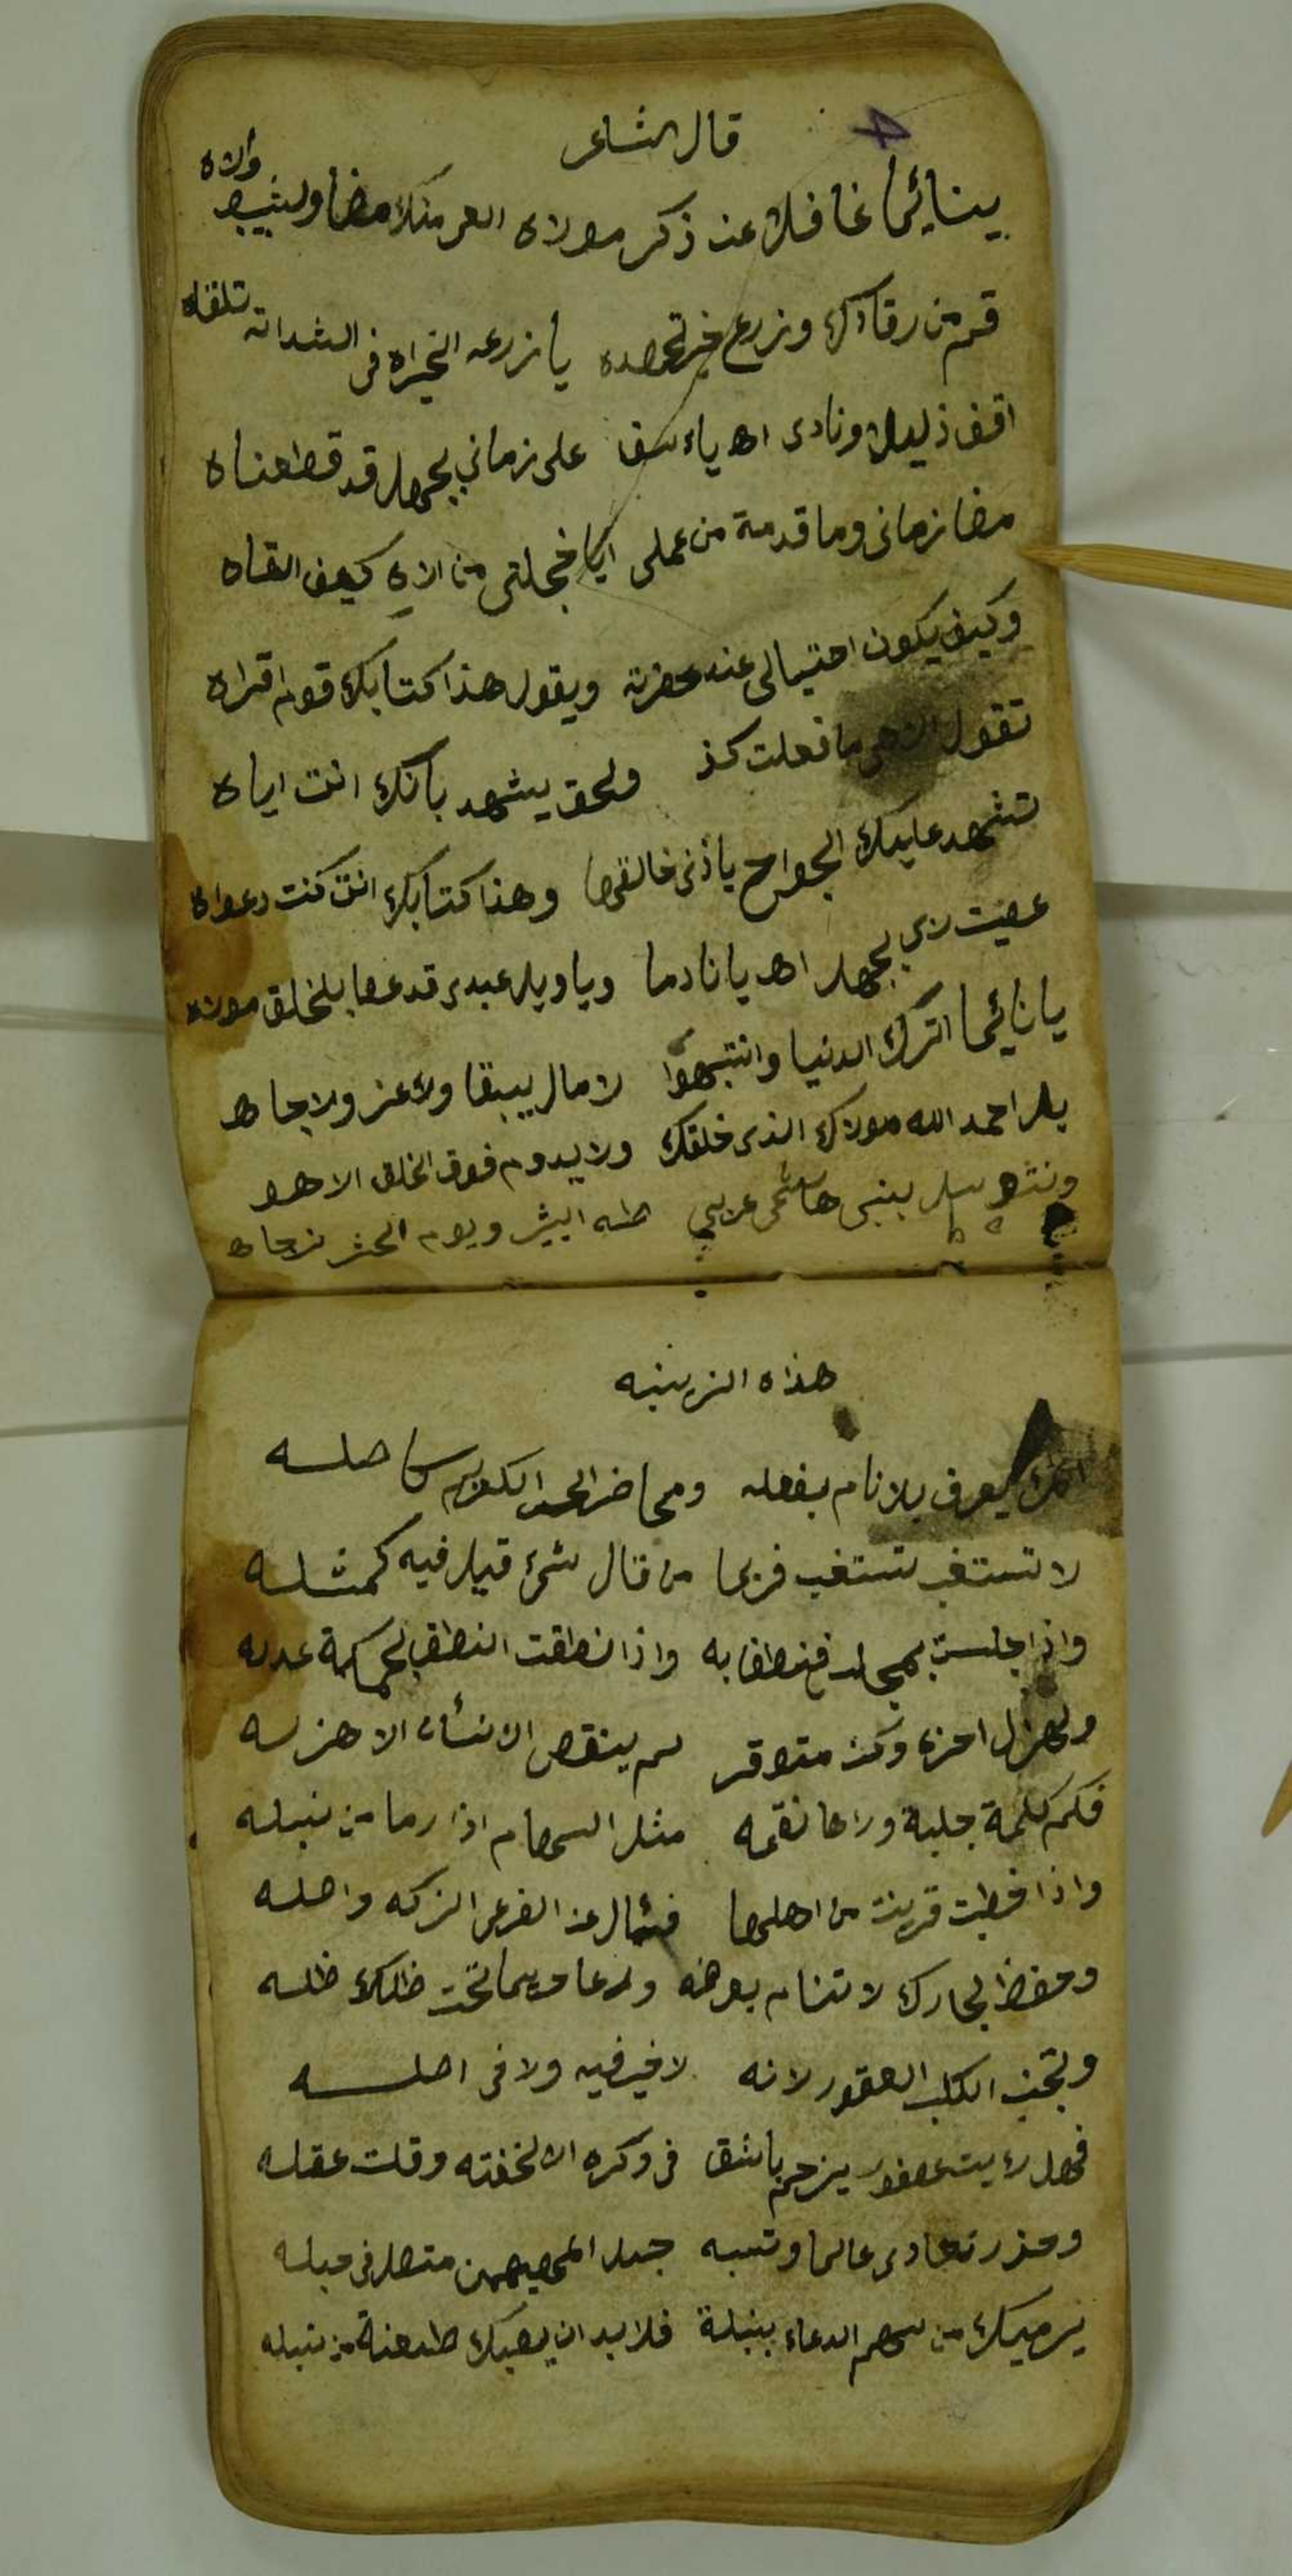 قال الشاعر
يينائما غافلا عن ذكر مولاه العمر منك مضا ولشيب والاه
قم من رقادك وزرع خير تحصده يا زرعه الخيراه في الشداته تلقاه
اقف ذليلا ونادى اه ياءسف على زماني بجهل قد قطعناه
مضا زمانى وما قدمة من عملى ايا خجلتي من الاه كيف القاه
وكيف يكون احتيالى عند حضرته ويقول هذا كتابك قوم اقراه
تقول الاهي ما فعلت كذ ولحق يشهد بانك انت اياه
تشهد عليك الجوارح ياذن خالقها وهذا كتابك انت كنت دعواه
عصيت ربي بجهل اه يا نادما وياويل عبدى قد عصا بلخلق مولاه
يا نائما اترك الدنيا وانتبهوا لا مال يبقا ولا عز ولا جاه
بل احمد الله مولاك الذى خلقك ولا يدوم فوق الخلق الا هو
ونتوسل بنبى هاشمى عربي طه البشر ويوم الحشر نرجاه
هذاه الزينبه
يعرف بلانام بفعله ومحاضر الكريم كاصله
لا تستغب تستغب فربما من قال شئ قيل فيه كمثله
واذا جلست بمجلد فنطف به واذا نطقت النطق لحكمة عدله
ولهزل احزه وكن متوقر لم ينقص الانسان الا هزله
فكم كلمة جلبة وراها نقمه مثل السهام اذا رما من نبله
واذا خطبت قرينت من اهلها فسال عن الفرع الزكه واصله
وحفظ لجارك لا تنام بعرضه ولدعا ويما تحت ظلك ظله
وتجنب الكلب العقور لانه لا خير فيه ولا في اصله
فهل رءيت عصفور يزحم باشق في وكره الا لخفته وقلت عقله
وحذر تعادى عالما وتسبه حبل المهيمن متصل في حبله
يرميك من سهم الدعاء بنبلة فلابد ان يصبك طعنة من نبله